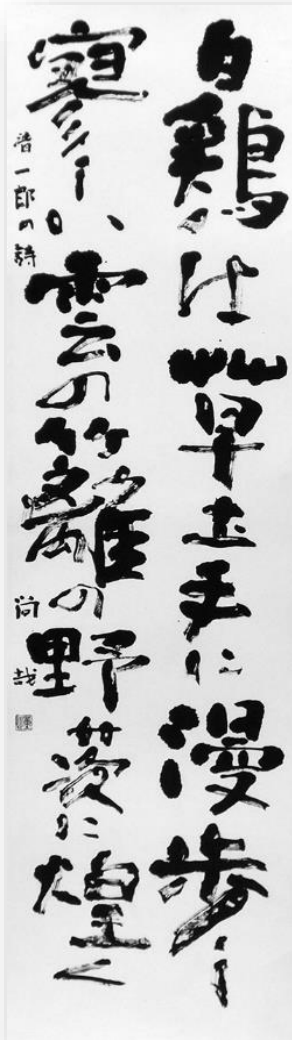 白鶏は草土手に漫歩し
寥しい雲の籬の野に煌く
晋一郎の詩
尚哉